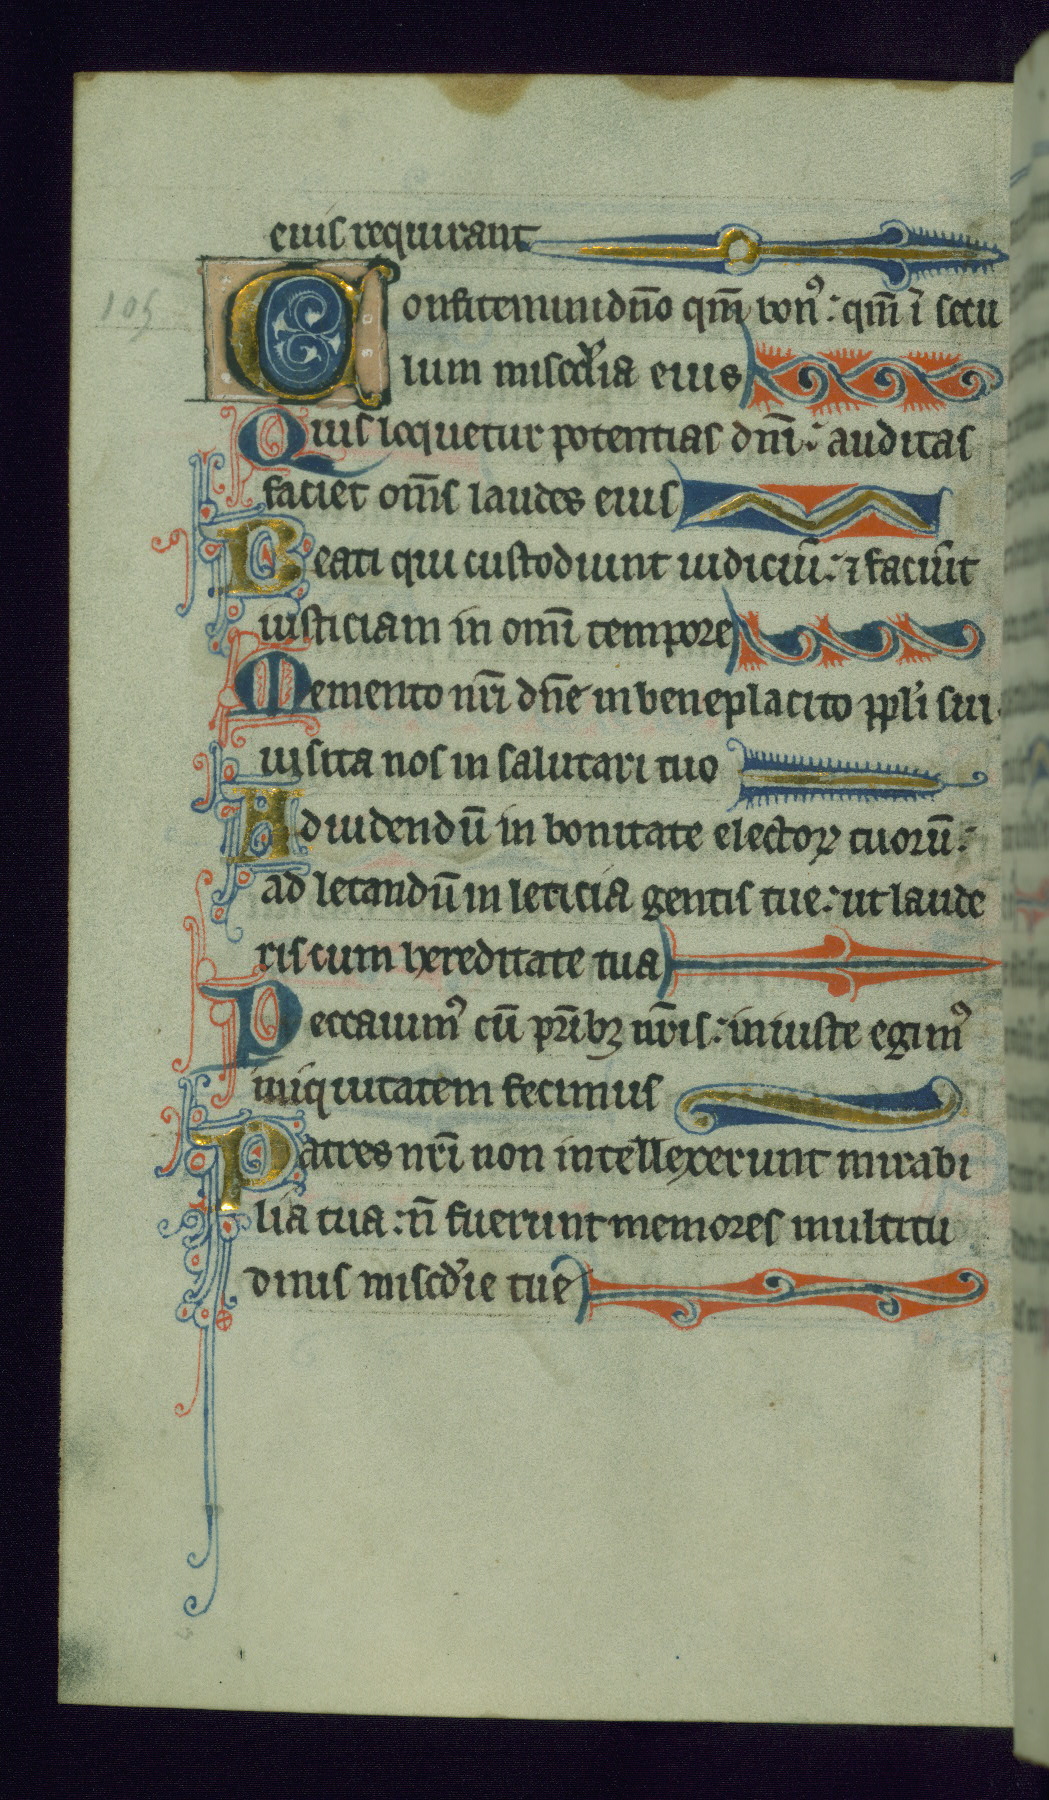 eius requirant
105
Confitemini dn̄o qm̄ bonꝰ: qm̄ ī secu
lum miscd̕ia eius
Quis loquetur potentias dn̄i: auditas
faciet om̄s laudes eius
Beati qui custodiunt iudiciū: ⁊ faciūt
iusticiam in om̄i tempore
Memento nr̄i dn̄e in beneplacito ppl̕i sui
uisita nos in salutari tuo
Ad uidendū in bonitate electoꝝ tuorū:
ad letandū in leticia gentis tue: ut laude
ris cum hereditate tua
Peccauimꝰ cū pr̄ibꝫ nr̄is: iniuste egimꝰ
iniquitatem fecimus
Patres nr̄i non intellexerunt mirabi
lia tua: n̄ fuerunt memores multitu
dinis miscd̕ie tue